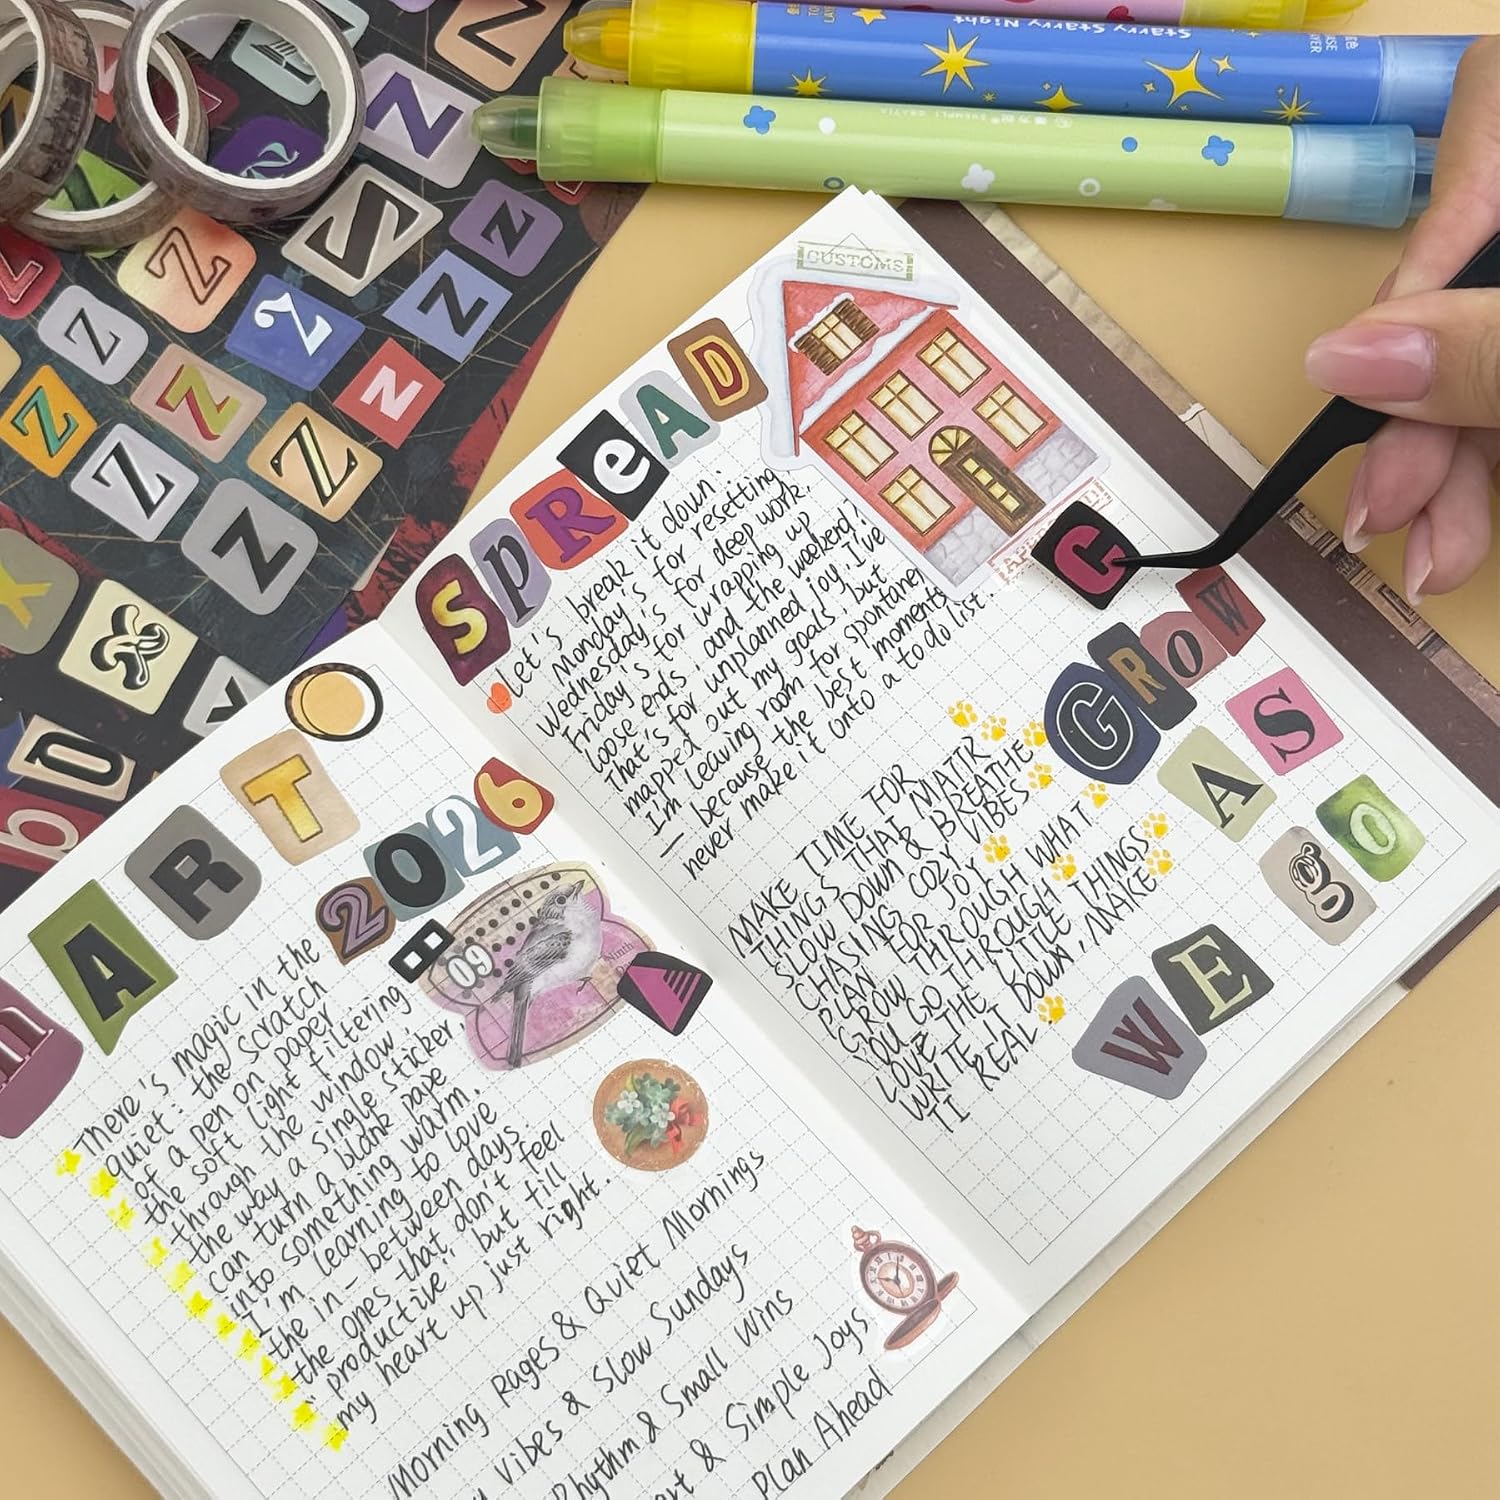 Starry Starry Night
CUSTOMS
SpReAD
Let's break it down:
Monday's for resetting
Wednesday's for deep work.
Friday's for wrapping up
loose ends, and the weekend?
That's for unplanned joy. I've
mapped out my goals, but
I'm leaving room for spontaner
— because the best moments
never make it onto a to do list.
C
GROW
AS
go
WE
MAKE TIME FOR
THINGS THAT MATTR
SLOW DOWN & BREATHE
CHASING COZY VIBES
PLAN FOR JOY
GROW THROUGH WHAT
YOU GO THROUGH
LOVE THE LITTLE THINGS
WRITE IT DOWN, MAKE
TI REAL
mART
2026
09
Ninth
There's magic in the
quiet: the scratch
of a pen on paper
the soft light filtering
through the window,
the way a single sticker,
can turn a blank pape
into something warm.
I'm learning to love
the in-between days
the ones that don't feel
"productive", but fill
my heart up just right.
Morning Pages & Quiet Mornings
Vibes & Slow Sundays
Rhythm & Small Wins
& Simple Joys
Plan Ahead
Z
Z
Z
Z
Z
Z
Z
Z
Z
Z
Z
Z
Z
X
X
D
b